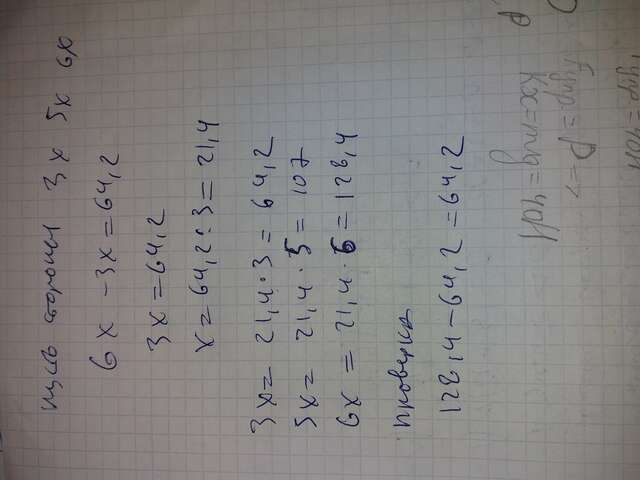 пусть стороны 3x 5x 6x
6x - 3x = 64,2
3x = 64,2
x = 64,2 : 3 = 21,4
3x = 21,4 · 3 = 64,2
5x = 21,4 · 5 = 107
6x = 21,4 · 6 = 128,4
проверка
128,4 - 64,2 = 64,2
Kx = mg = 40H
Fупр = P =>